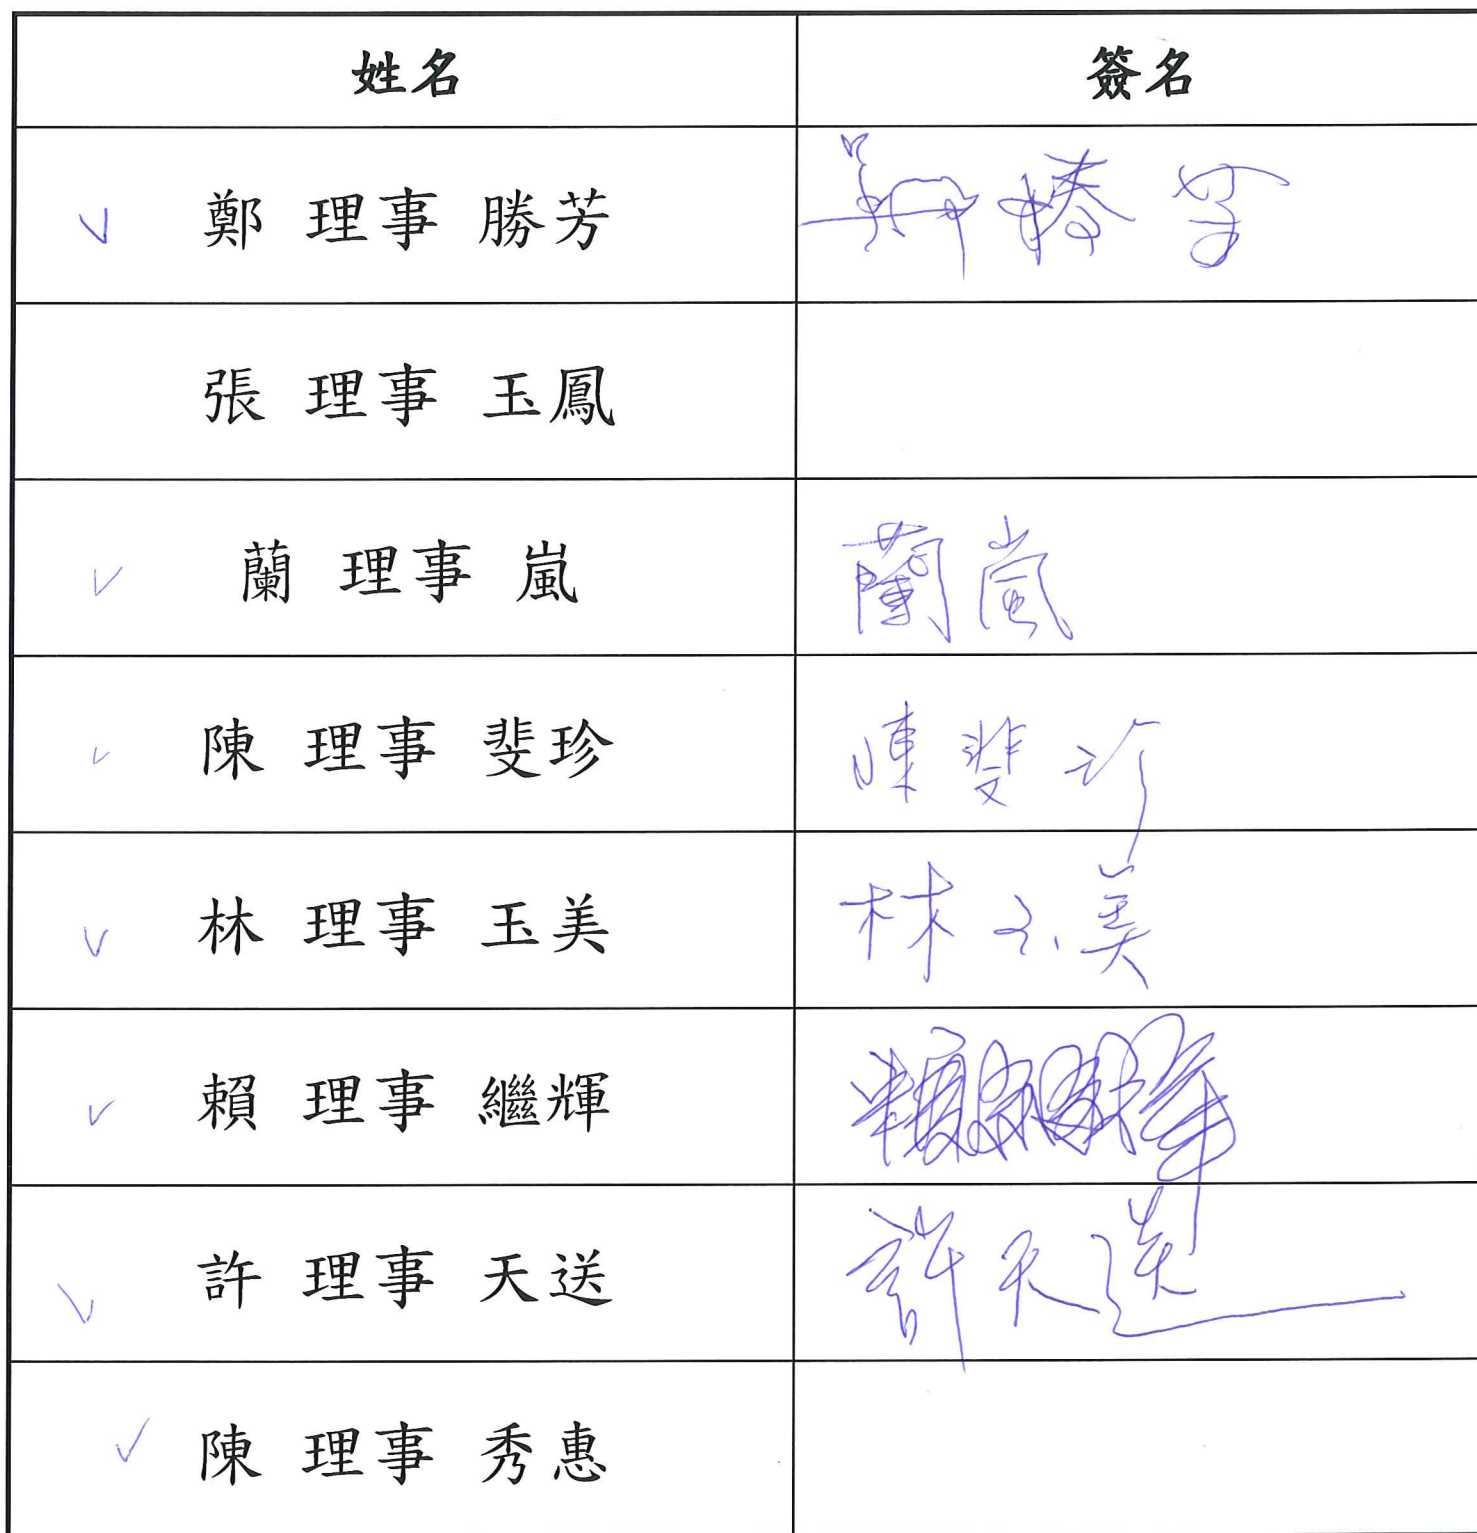 姓名 簽名
鄭 理事 勝芳 鄭
張 理事 玉鳳
蘭 理事 嵐 蘭嵐
陳 理事 斐珍 陳斐珍
林 理事 玉美 林玉美
賴 理事 繼輝 賴繼輝
許 理事 天送 許天送
陳 理事 秀惠